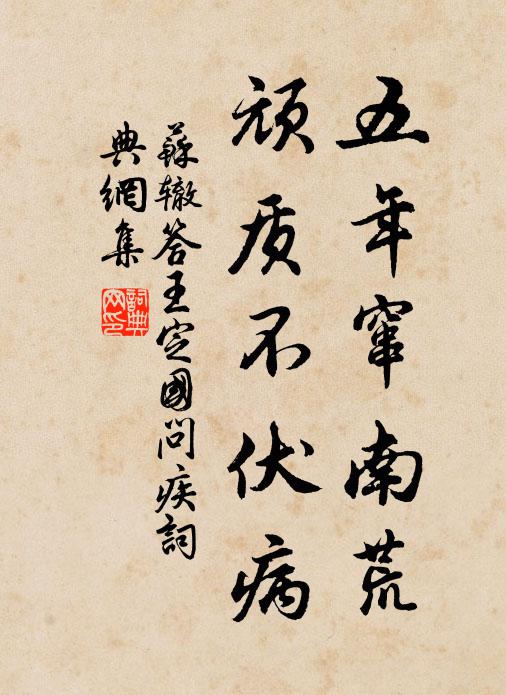 五年窜南荒
顽质不伏病
蘇辙答王定國問疾詞
典網集
詞典
网印